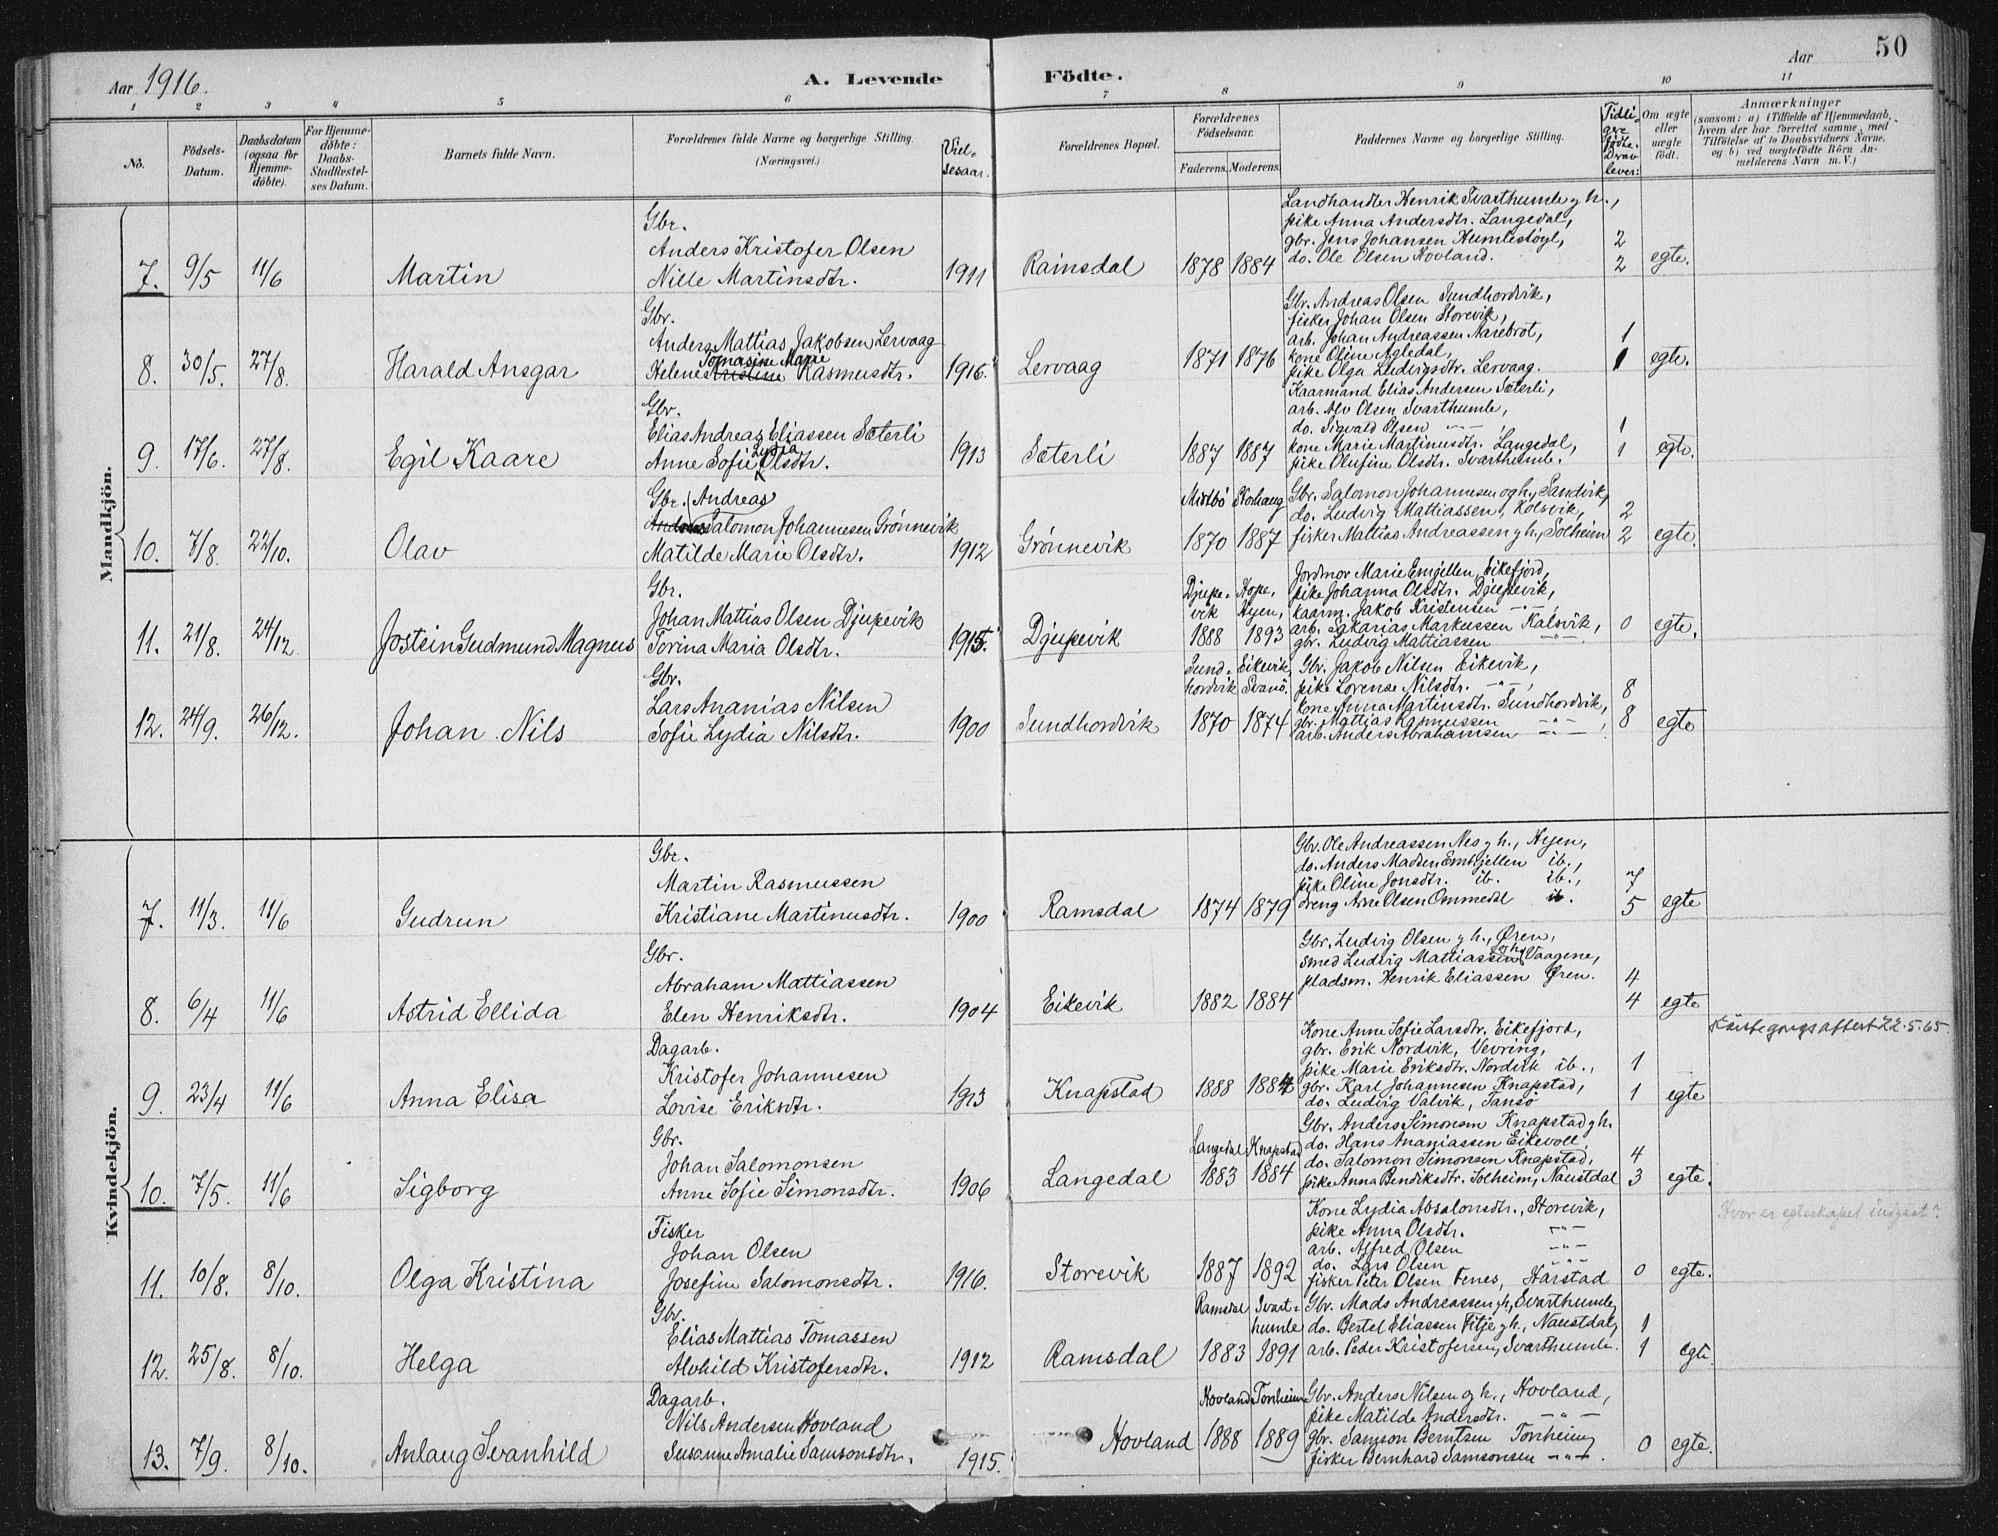 50
Aar 1916.
A. Levende Födte.
Aar
1 2 3 4 5 6 7 8 9 10 11
No.
Födsels-Datum.
Daabsdatum (ogsaa for Hjemme-döbte).
For Hjemme-döbte: Daabs-Stadfæstel-ses Datum.
Barnets fulde Navn.
Forældrenes fulde Navne og borgerlige Stilling. (Næringsvei.)
Viel-sesaar.
Forældrenes Bopæl.
Forældrenes Födselsaar.
Faderens. Moderens.
Faddernes Navne og borgerlige Stilling.
Tidli-gere fødte. Drav lever:
Om ægte eller uægte födt.
Anmærkninger
(saasom: a) i Tilfælde af Hjemmedaab, hvem der har forrettet samme, med Tilföielse af to Daabsvidners Navne. og b) ved uægtefödte Börn An-melderens Navn m. V.)
Mandkjön.
Gbr.
Anders Kristofer Olsen
7. 9/5 11/6 Martin Nille Martinsdtr. 1911 Ramsdal 1878 1884
Landhandler Henrik Svarthumle g h.,
pike Anna Andersdtr. Langedal,
gbr. Jens Johansen Humlestøyl, 2
do. Ole Olsen Hovland. 2 egte.
Gbr.
Anders Mattias Jakobsen Lervaag
Tomasine Marie
8. 30/5. 27/8. Harald Ansgar Helene Kristine Rasmusdtr. 1916. Lervaag 1871 1876
Gbr. Andreas Olsen Sundhordvik,
fisker Johan Olsen Storevik,
arb. Johan Andreassen Aarebrot, 1
kone Oline Agledal,
pike Olga Ludvigsdtr. Lervaag. 1 egte.
Gbr.
Elias Andreas Eliassen Sæterli
Lydia
9. 17/6. 27/8. Egil Kaare Anne Sofie Olsdtr. 1913 Sæterli 1887 1887
Kaarmand Elias Andersen Sæterli,
arb. Alv Olsen Svarthumle,
do. Sigvald Olsen -"-, 1
kone Marie Martinusdtr. Langedal,
pike Olufine Olsdtr. Svarthumle. 1 egte.
Gbr. Andreas
Anders Salomon Johannesen Grønnevik
10. 7/8. 22/10. Olav Matilde Marie Olsdtr. 1912 Grønnevik
Midtbö Storhaug
1870 1887
Gbr. Salomon Johannesen og h., Sandvik,
do. Ludvig Mattiassen, Kolsvik, 2
fisker Mattias Andreassen g h., Solheim 2 egte.
Gbr.
Johan Mattias Olsen Djupevik
11. 21/8. 24/12. Jostein Gudmund Magnus Torina Maria Olsdtr. 1915. Djupevik
Djupe-vik Hope, Hyen,
1888 1893
Jordmor Marie Emjellen, Eikefjord,
pike Johanna Olsdtr. Djupevik,
kaarm. Jakob Kristensen -"-,
arb. Sakarias Markussen Kalsvik, 0 egte.
gbr. Ludvig Mattiassen -"-
Gbr.
Lars Ananias Nilsen
12. 24/9. 26/12. Johan Nils Sofie Lydia Nilsdtr. 1900 Sundhordvik
Sund-hordvik Eikevik, Svanö.
1870 1874
Gbr. Jakob Nilsen Eikevik,
pike Lorense Nilsdtr. -"-, 8
kone Anna Martinsdtr. Sundhordvik,
gbr. Mattias Rasmussen -"-, 8 egte
arb. Anders Abrahamsen -"-.
Kvindekjön.
Gbr.
Martin Rasmussen
7. 11/3. 11/6 Gudrun Kristiane Martinusdtr. 1900 Ramsdal 1874 1879
Gbr. Ole Andreassen Nes g h., Hyen,
do. Anders Madsen Emhjellen ib.,
pike Oline Jonsdtr. ib. ib., 7
dreng Arne Olsen Ommedal ib. 5 egte
Gbr.
Abraham Mattiassen
8. 6/4 11/6 Astrid Ellida Elen Henriksdtr. 1904 Eikevik 1882 1884
Gbr. Ludvig Olsen g h., Øren,
smed Ludvig Mattiassen g h. Vaagene,
pladsm. Henrik Eliassen Øren. 4
4 egte
Dagarb.
Kristofer Johannesen
9. 23/4 11/6 Anna Elisa Lovise Eriksdtr. 1913 Knapstad 1888 1884
Kone Anne Sofie Larsdtr. Eikefjord,
gbr. Erik Nordvik, Vevring,
pike Marie Eriksdtr. Nordvik ib., 1
gbr. Karl Johannesen Knapstad,
do. Ludvig Valvik, Tansö 1 egte
22.5.65.
Gbr.
Johan Salomonsen
10. 7/5. 11/6 Sigborg Anne Sofie Simonsdtr. 1906 Langedal
Langedal Knapstad
1883 1884
Gbr. Anders Simonsen Knapstad g h.
do. Hans Ananiassen Eikevoll,
do. Salomon Simonsen Knapstad, 4
pike Anna Bendiksdtr. Solheim, Naustdal 3 egte.
Fisker
Johan Olsen
11. 10/8. 8/10. Olga Kristina Josefine Salomonsdtr. 1916. Storevik 1887 1892
Kone Lydia Absalonsdtr., Storevik,
pike Anna Olsdtr. -"-
arb. Alfred Olsen -"-
do. Lars Olsen -"-
fisker Peter Olsen Fenes, Harstad 0 egte.
Hvor er egteskapet indgaat?
Gbr.
Elias Mattias Tomassen
12. 25/8. 8/10. Helga Alvhild Kristofersdtr. 1912 Ramsdal
Ramsdal Svart-humle
1883 1891
Gbr. Mads Andreassen g h., Svarthumle,
do. Bertel Eliassen Fitje g h., Naustdal, 1
arb. Peder Kristofersen, Svarthumle. 1 egte.
Dagarb.
Nils Andersen Hovland
13. 7/9. 8/10. Anlaug Svanhild Susanne Amalie Samsonsdtr. 1915. Hovland
Hovland Torsheim
1888 1889
Gbr. Anders Nilsen g h., Hovland,
pike Matilde Andersdtr. -"-
gbr. Samson Berntsen Torsheim, 0 egte.
fisker Bernhard Samsonsen -"-.